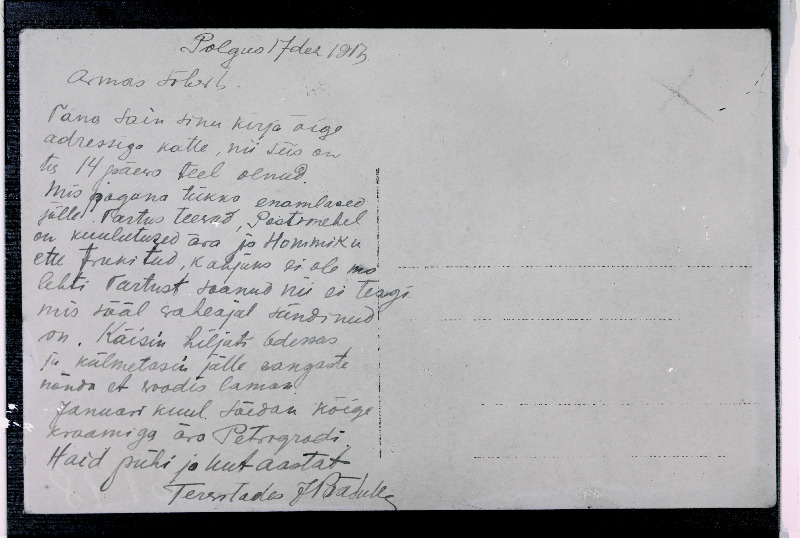 Polgus 17 dez 1917
Armas sõber!
Täna sain sinu kirja õige
adressiga katte, nii siis on
ta 14 päewa teel olnud.
Mis pagana tükka enamlased
jälle Tartus teewad, Postimehel
on kuulutused ära ja Hommiku
ette trükitud, kahjuks ei ole ma
lehti Tartust saanud nii ei teagi
mis sääl waheajal sündinud
on. Käisin hiljuti Odessas
ja külmetasin jälle wangaste
nõnda et woodis laman
Januari kuul sõidan kõige
kraamiga ära Petrogradi.
Haid pühi ja uut aastat
Terwitades